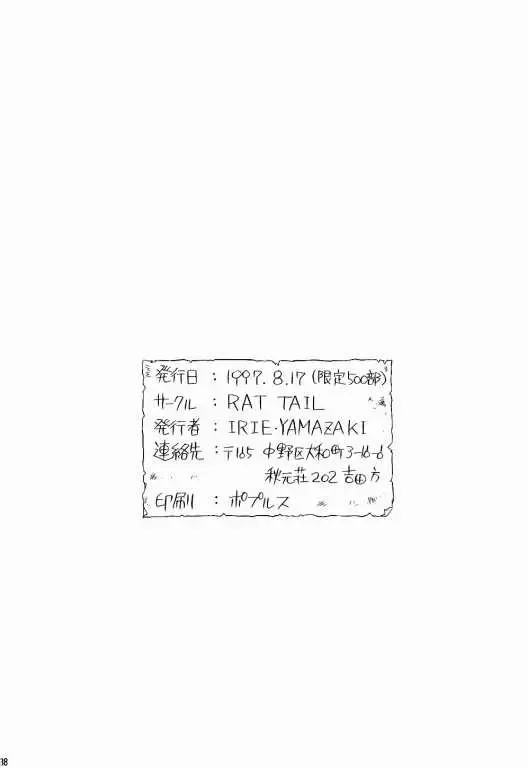 発行日 : 1997.8.17 (限定500部)
サークル : RAT TAIL
発行者 : IRIE・YAMAZAKI
連絡先 : 〒165 中野区大和町3-16-6
秋元荘202 吉田方
印刷 : ポプルス
18